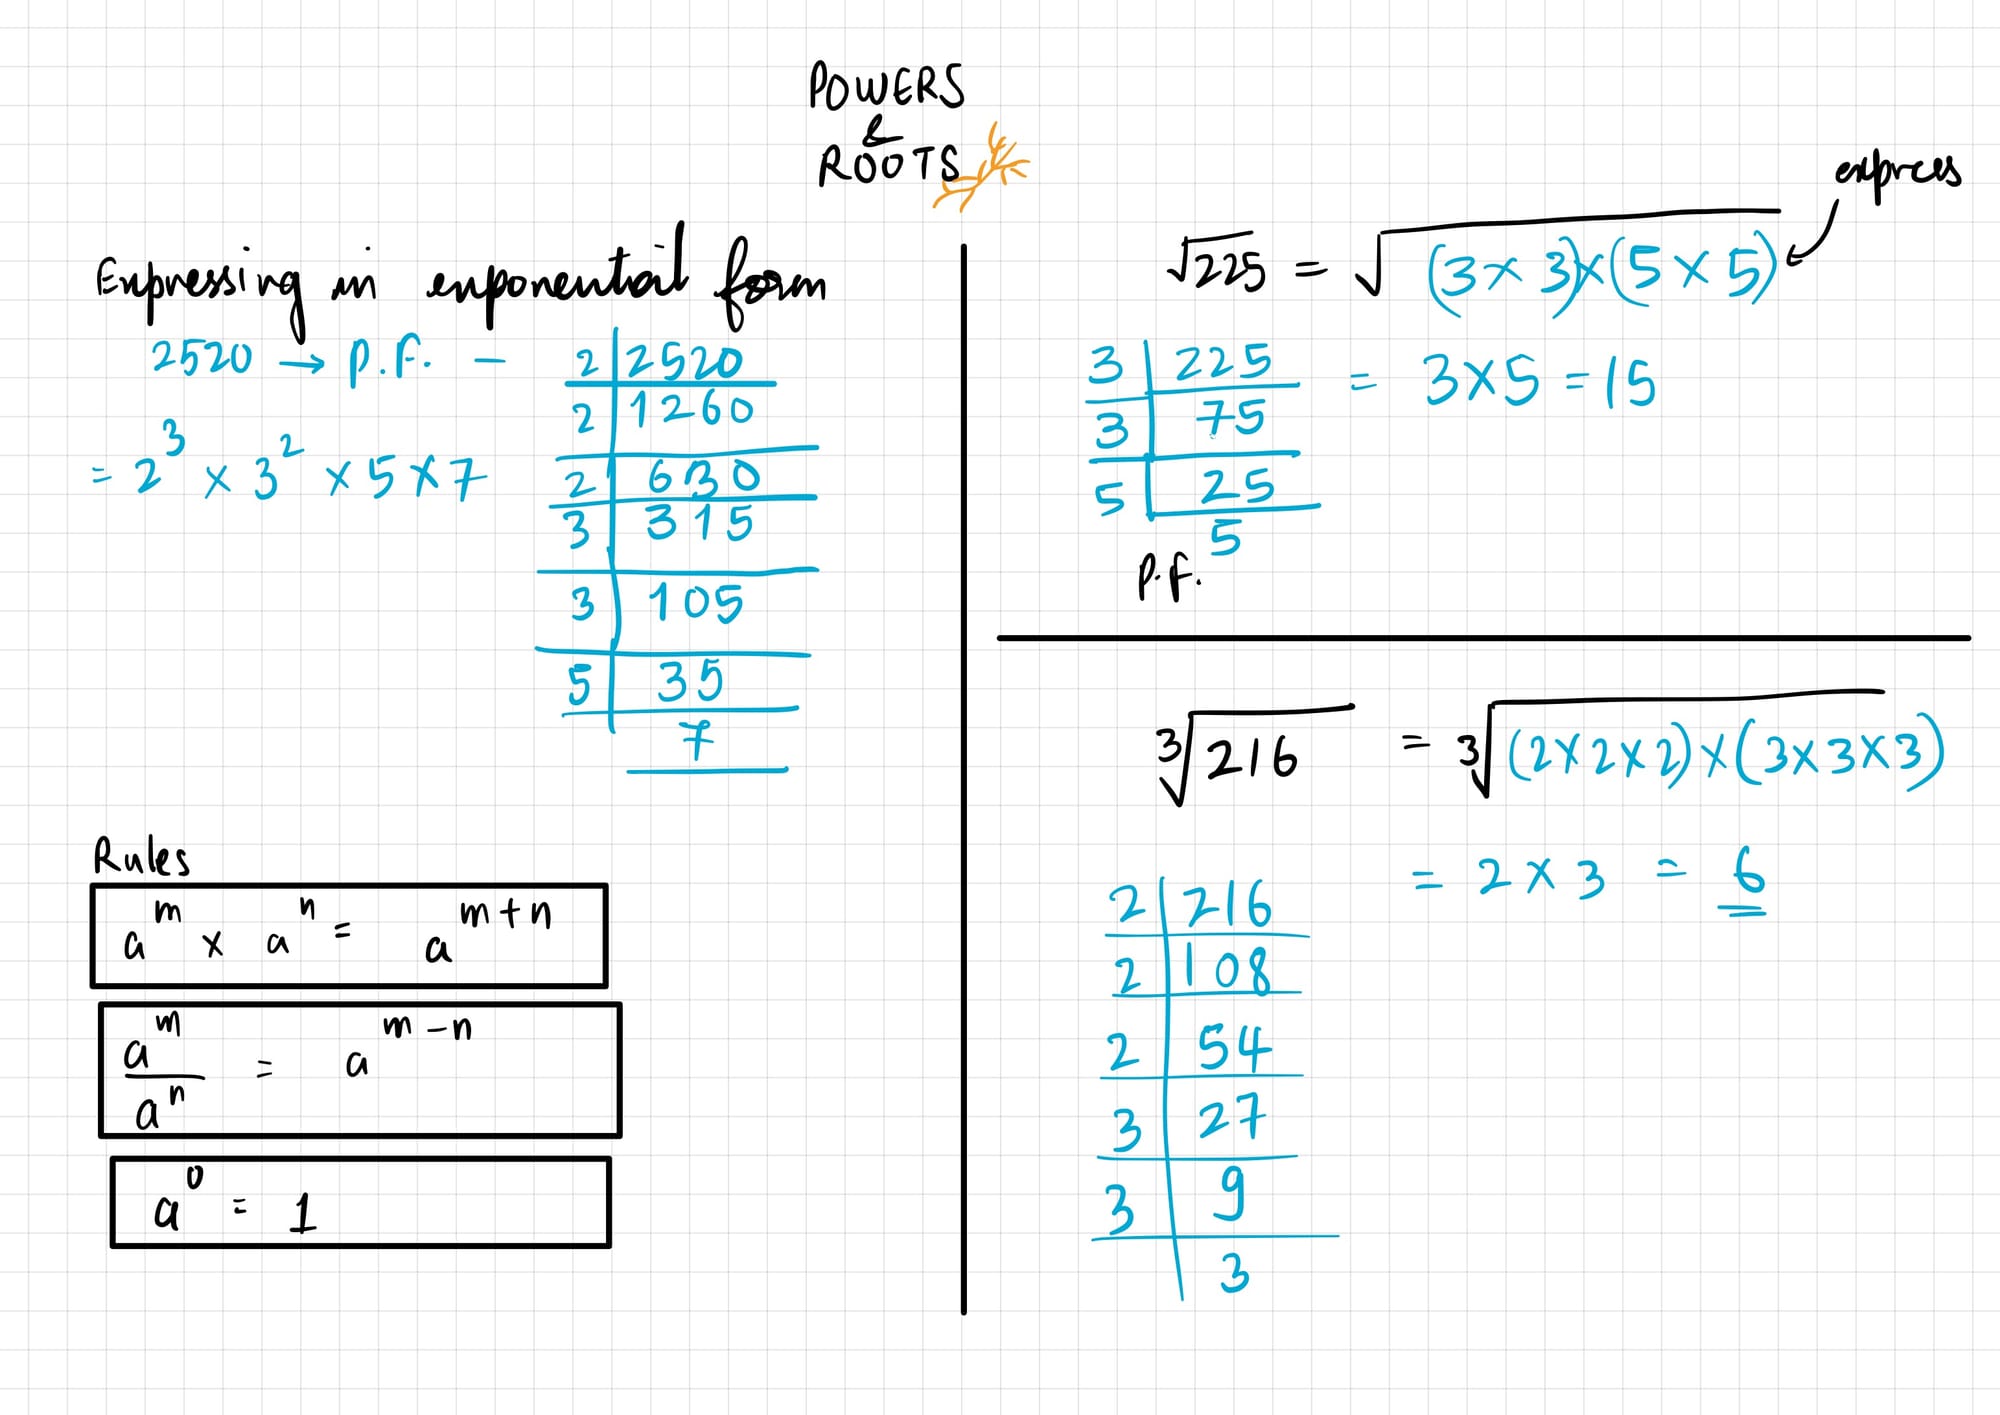 POWERS
&
ROOTS
Expressing in exponential form
2520 → P.F. –
2 | 2520
2 | 1260
2 | 630
3 | 315
3 | 105
5 | 35
7
= 2³ × 3² × 5 × 7
Rules
a^m × a^n = a^(m+n)
a^m / a^n = a^(m-n)
a^0 = 1
express
√225 = √(3 × 3)×(5 × 5)
= 3×5 = 15
3 | 225
3 | 75
5 | 25
5
P.F.
³√216 = ³√(2×2×2)×(3×3×3)
= 2 × 3 = 6
2 | 216
2 | 108
2 | 54
3 | 27
3 | 9
3